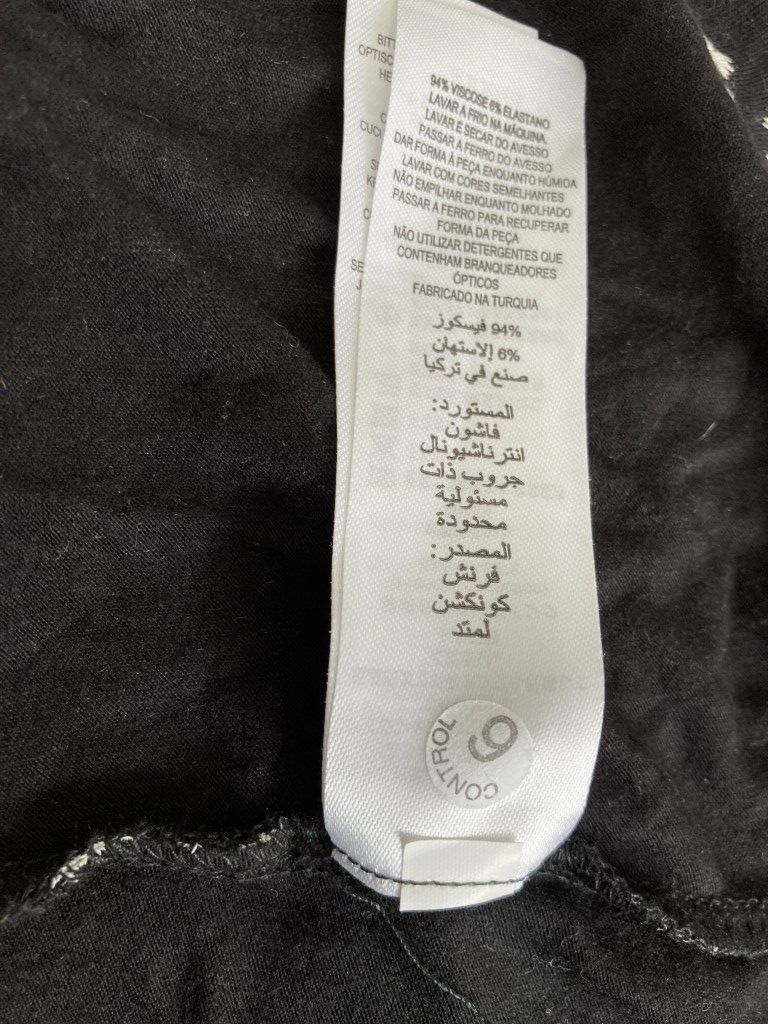 BITT
OPTISC
HE
C
CUCI
S
K
C
SE
J
94% VISCOSE 6% ELASTANO
LAVAR À FRIO NA MÁQUINA
LAVAR E SECAR DO AVESSO
PASSAR A FERRO DO AVESSO
DAR FORMA À PEÇA ENQUANTO HÚMIDA
LAVAR COM CORES SEMELHANTES
NÃO EMPILHAR ENQUANTO MOLHADO
PASSAR A FERRO PARA RECUPERAR
FORMA DA PEÇA
NÃO UTILIZAR DETERGENTES QUE
CONTENHAM BRANQUEADORES
ÓPTICOS
FABRICADO NA TURQUIA
94% فيسكوز
6% إلاستهان
صنع في تركيا
المستورد:
فاشون
انترناشيونال
جروب ذات
مسئولية
محدودة
المصدر:
فرنش
كونكشن
لمتد
CONTROL
9